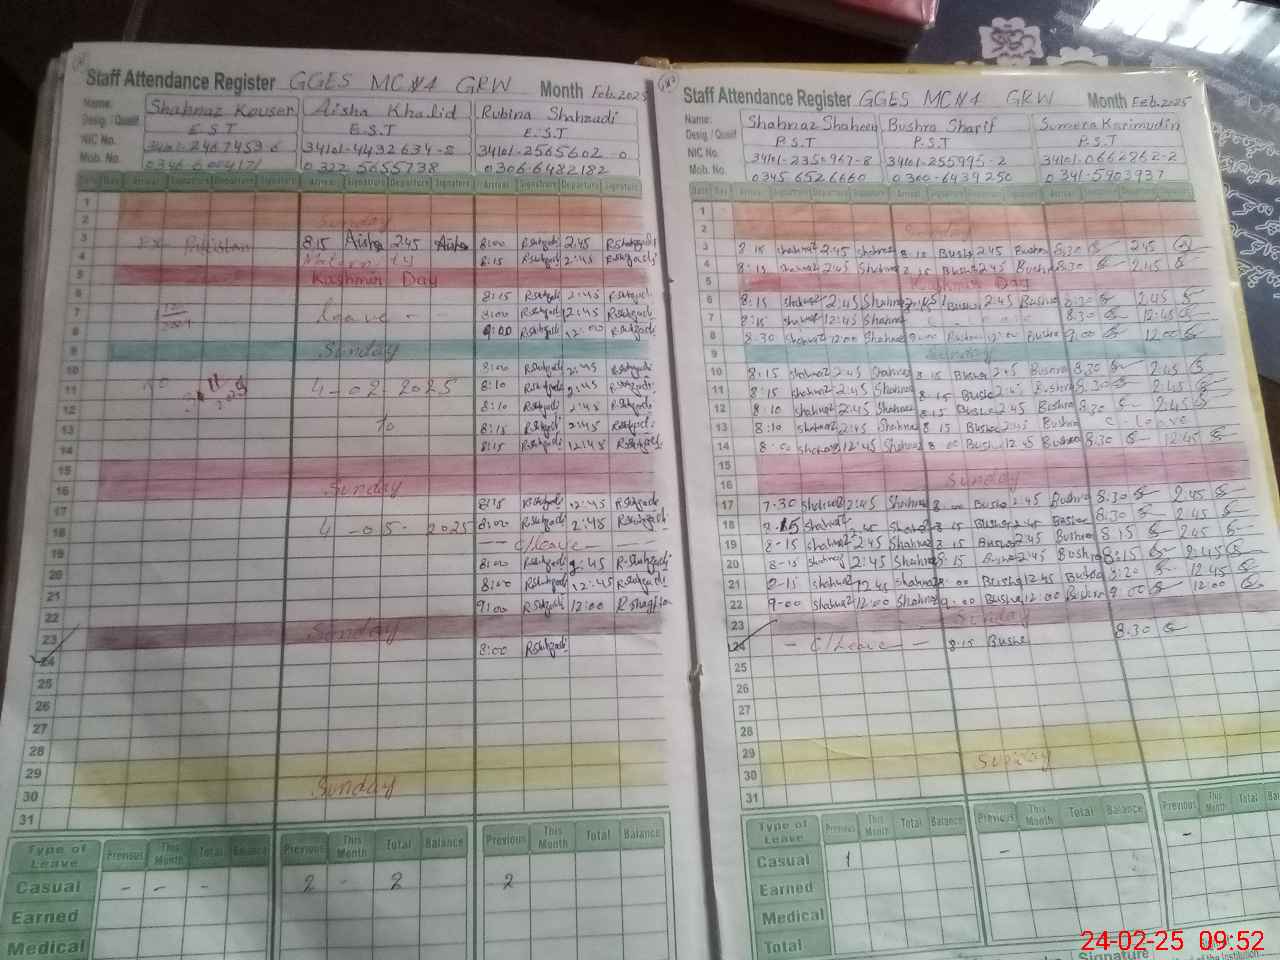 Staff Attendance Register GGES MC№4 GRW Month Feb.2025
Name: Shahnaz Kouser Aisha Khalid Rubina Shahzadi
Desig. / Qualif E.S.T E.S.T E.S.T
NIC No. 34101-4432634-8 34101-2565602-0
Mob. No. 0322-5655738 0306-6482182
Date Day Arrival Signature Departure Signature Arrival Signature Departure Signature Arrival Signature Departure Signature
1
2 Sunday
3 Ex Pakistan 8:15 Aisha 2:45 Aisha 8:00 R.Shahzadi 2:45 R.Shahzadi
4 Maternity 8:15 R.Shahzadi 2:45 R.Shahzadi
5 Kashmir Day
6 8:15 R.Shahzadi 2:45 R.Shahzadi
7 Leave - - 8:00 R.Shahzadi 12:45 R.Shahzadi
8 9:00 R.Shahzadi 12:00 R.Shahzadi
9 Sunday
10 8:00 R.Shahzadi 2:45 R.Shahzadi
11 4-02-2025 8:10 R.Shahzadi 2:45 R.Shahzadi
12 to 8:10 R.Shahzadi 2:45 R.Shahzadi
13 8:15 R.Shahzadi 2:45 R.Shahzadi
14 8:15 R.Shahzadi 12:45 R.Shahzadi
15
16 Sunday
17 8:15 R.Shahzadi 2:45 R.Shahzadi
18 4-05-2025 8:00 R.Shahzadi 2:45 R.Shahzadi
19 C/Leave
20 8:00 R.Shahzadi 2:45 R.Shahzadi
21 8:00 R.Shahzadi 12:45 R.Shahzadi
22 9:00 R.Shahzadi 12:00 R.Shahzadi
23 Sunday
24 8:00 R.Shahzadi
25
26
27
28
29
30 Sunday
31
Type of Leave Previous This Month Total Balance Previous This Month Total Balance Previous This Month Total Balance
Casual - - - 2 - 2 2
Earned
Medical
Staff Attendance Register GGES MC№4 GRW Month Feb.2025
Name: Shahnaz Shaheen Bushra Sharif Sumera Karimudin
Desig. / Qualif P.S.T P.S.T P.S.T
NIC No. 34101-2350967-8 34101-255995-2 34101-0662762-2
Mob. No. 0345 6526660 0300-6439250 0341-5903937
Date Day Arrival Signature Departure Signature Arrival Signature Departure Signature
1
2 Sunday
3 8:15 Shahnaz 2:45 Shahnaz 8:15 Bushra 2:45 Bushra 8:30 2:45
4 8:15 Shahnaz 2:45 Shahnaz 8:15 Bushra 2:45 Bushra 8:30 2:45
5 Kashmir Day
6 8:15 Shahnaz 2:45 Shahnaz 8:15 Bushra 2:45 Bushra 8:30 2:45
7 8:15 Shahnaz 12:45 Shahnaz 8:30 12:45
8 8:30 Shahnaz 12:00 Shahnaz 9:00 Bushra 12:00 Bushra 9:00 12:00
9 Sunday
10 8:15 Shahnaz 2:45 Shahnaz 8:15 Bushra 2:45 Bushra 8:30 2:45
11 8:15 Shahnaz 2:45 Shahnaz 8:15 Bushra 2:45 Bushra 8:30 2:45
12 8:10 Shahnaz 2:45 Shahnaz 8:15 Bushra 2:45 Bushra 8:30 2:45
13 8:10 Shahnaz 2:45 Shahnaz 8:15 Bushra 2:45 Bushra C-Leave
14 8:00 Shahnaz 12:45 Shahnaz 8:00 Bushra 12:45 Bushra 8:30 12:45
15
16 Sunday
17 7:30 Shahnaz 2:45 Shahnaz 8:00 Bushra 2:45 Bushra 8:30 2:45
18 8:15 Shahnaz 2:45 Shahnaz 8:15 Bushra 2:45 Bushra 8:30 2:45
19 8-15 Shahnaz 2:45 Shahnaz 8:15 Bushra 2:45 Bushra 8:15 2:45
20 8-15 Shahnaz 2:45 Shahnaz 8:15 Bushra 2:45 Bushra 8:15 2:45
21 8-15 Shahnaz 12:45 Shahnaz 8:00 Bushra 12:45 Bushra 8:20 12:45
22 9-00 Shahnaz 12:00 Shahnaz 9:00 Bushra 12:00 Bushra 9:00 12:00
23 Sunday
24 - C/Leave - 8:15 Bushra 8:30
25
26
27
28
29
30 Sunday
31
Type of Leave Previous This Month Total Balance Previous This Month Total Balance Previous This Month Total
Casual 1 - -
Earned
Medical
Total
Signature
24-02-25 09:52